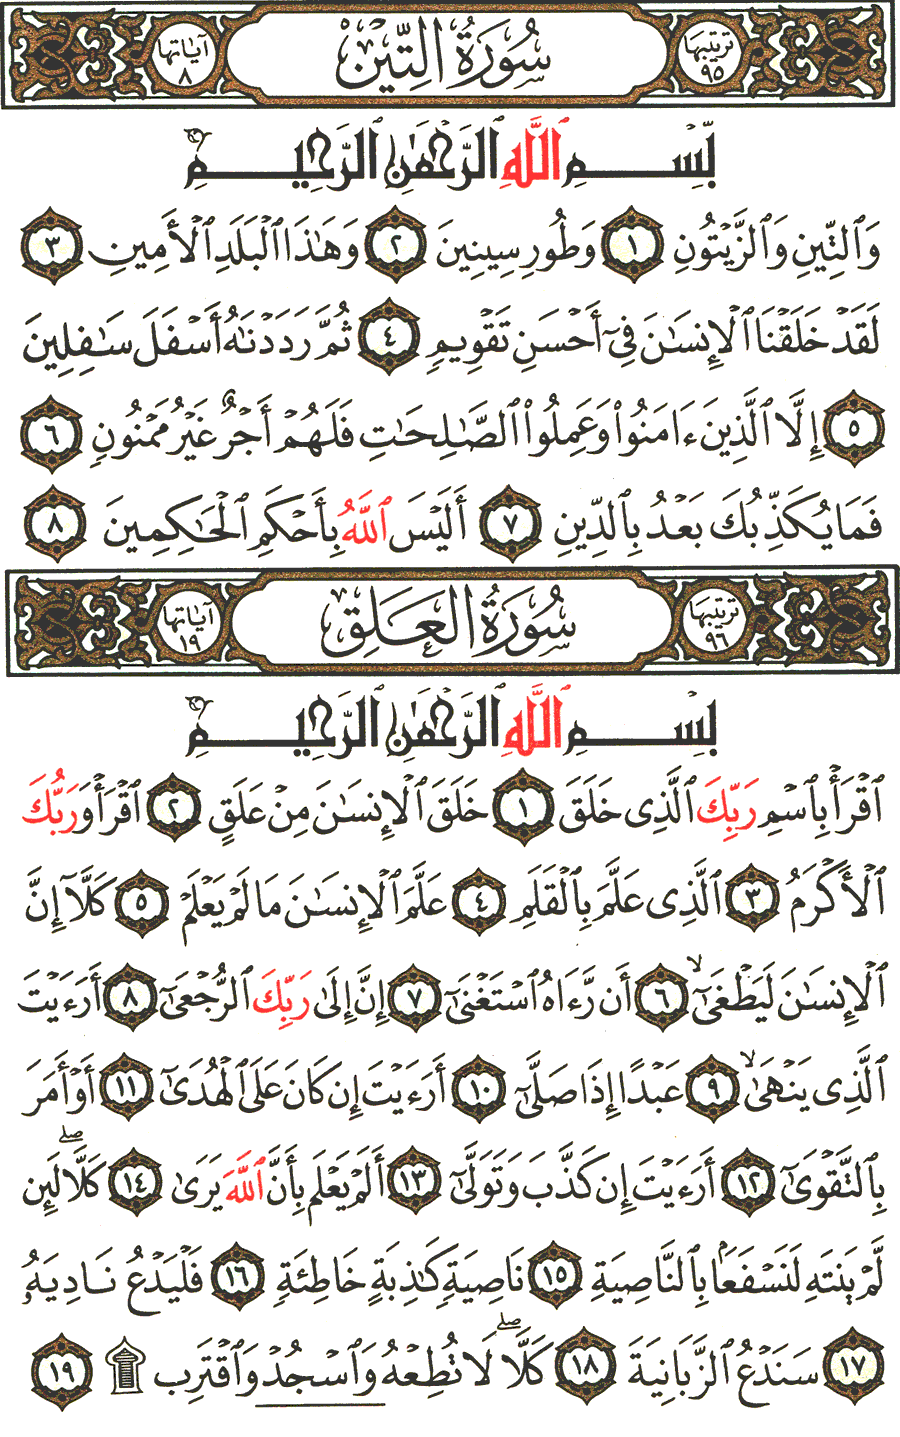 ترتيبها ٩٥ سُورَةُ التِّينِ آياتها ٨
بِسْمِ ٱللَّهِ ٱلرَّحْمَٰنِ ٱلرَّحِيمِ
وَٱلتِّينِ وَٱلزَّيْتُونِ ١ وَطُورِ سِينِينَ ٢ وَهَٰذَا ٱلْبَلَدِ ٱلْأَمِينِ ٣
لَقَدْ خَلَقْنَا ٱلْإِنسَٰنَ فِىٓ أَحْسَنِ تَقْوِيمٍ ٤ ثُمَّ رَدَدْنَٰهُ أَسْفَلَ سَٰفِلِينَ
٥ إِلَّا ٱلَّذِينَ ءَامَنُوا۟ وَعَمِلُوا۟ ٱلصَّٰلِحَٰتِ فَلَهُمْ أَجْرٌ غَيْرُ مَمْنُونٍ ٦
فَمَا يُكَذِّبُكَ بَعْدُ بِٱلدِّينِ ٧ أَلَيْسَ ٱللَّهُ بِأَحْكَمِ ٱلْحَٰكِمِينَ ٨
ترتيبها ٩٦ سُورَةُ الْعَلَقِ آياتها ١٩
بِسْمِ ٱللَّهِ ٱلرَّحْمَٰنِ ٱلرَّحِيمِ
ٱقْرَأْ بِٱسْمِ رَبِّكَ ٱلَّذِى خَلَقَ ١ خَلَقَ ٱلْإِنسَٰنَ مِنْ عَلَقٍ ٢ ٱقْرَأْ وَرَبُّكَ
ٱلْأَكْرَمُ ٣ ٱلَّذِى عَلَّمَ بِٱلْقَلَمِ ٤ عَلَّمَ ٱلْإِنسَٰنَ مَا لَمْ يَعْلَمْ ٥ كَلَّآ إِنَّ
ٱلْإِنسَٰنَ لَيَطْغَىٰٓ ۙ ٦ أَن رَّءَاهُ ٱسْتَغْنَىٰٓ ٧ إِنَّ إِلَىٰ رَبِّكَ ٱلرُّجْعَىٰٓ ٨ أَرَءَيْتَ
ٱلَّذِى يَنْهَىٰ ۙ ٩ عَبْدًا إِذَا صَلَّىٰٓ ١٠ أَرَءَيْتَ إِن كَانَ عَلَى ٱلْهُدَىٰٓ ١١ أَوْ أَمَرَ
بِٱلتَّقْوَىٰٓ ١٢ أَرَءَيْتَ إِن كَذَّبَ وَتَوَلَّىٰٓ ١٣ أَلَمْ يَعْلَم بِأَنَّ ٱللَّهَ يَرَىٰ ١٤ كَلَّا ۖ لَئِن
لَّمْ يَنتَهِ لَنَسْفَعًۢا بِٱلنَّاصِيَةِ ١٥ نَاصِيَةٍ كَٰذِبَةٍ خَاطِئَةٍ ١٦ فَلْيَدْعُ نَادِيَهُۥ
١٧ سَنَدْعُ ٱلزَّبَانِيَةَ ١٨ كَلَّا ۖ لَا تُطِعْهُ وَٱسْجُدْ وَٱقْتَرِب ۩ ١٩